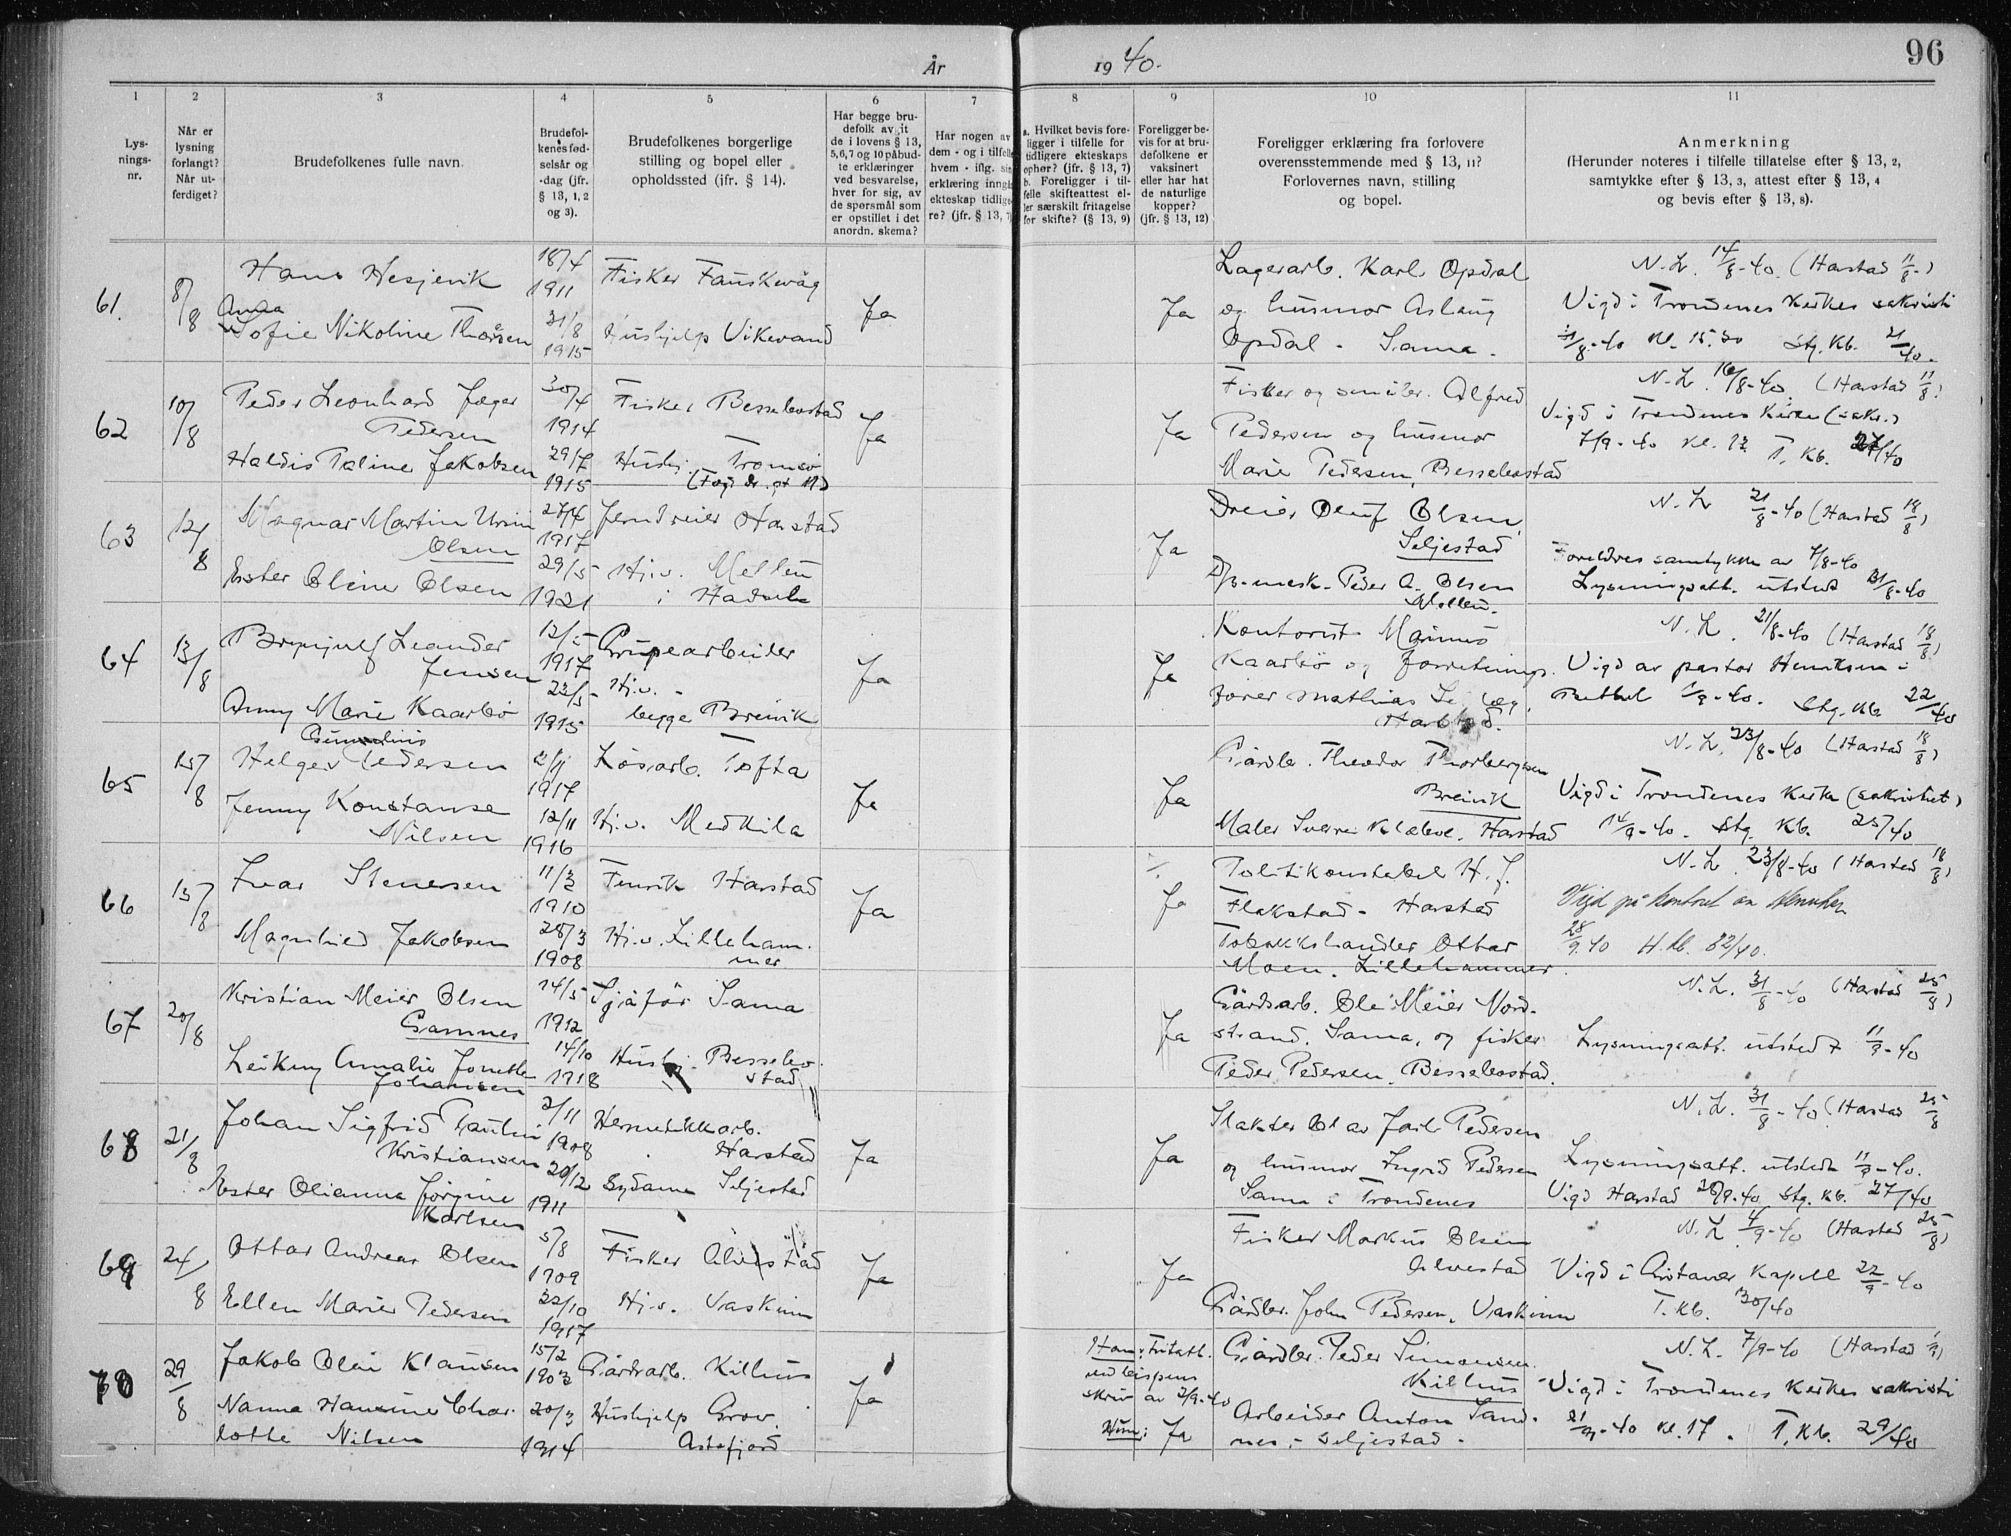 År 1940.
96
1 2 3 4 5 6 7 8 9 10 11
Lys-
nings-
nr.
Når er
lysning
forlangt?
Når ut-
ferdiget?
Brudefolkenes fulle navn.
Brudefol-
kenes fød-
selsår og
-dag (jfr.
§ 13, 1, 2
og 3).
Brudefolkenes borgerlige
stilling og bopel eller
opholdssted (jfr. § 14).
Har begge bru-
defolk avgitt
de i lovens § 13,
5,6,7 og 10 påbud-
te erklæringer
ved besvarelse,
hver for sig, av
de spørsmål som
er opstillet i det
anordn. skema?
Har nogen av
dem - og i tilfelle
hvem - iflg. sin
erklæring inngått
ekteskap tidlige-
re? (jfr. § 13, 7)
a. Hvilket bevis fore-
ligger i tilfelle for
tidligere ekteskaps
ophør? (jfr. § 13, 7)
b. Foreligger i til-
felle skifteattest el-
ler særskilt fritagelse
for skifte? (§ 13, 9)
Foreligger be-
vis for at bru-
defolkene er
vaksinert
eller har hatt
de naturlige
kopper?
(jfr. § 13, 12)
Foreligger erklæring fra forlovere
overensstemmende med § 13, 11?
Forlovernes navn, stilling
og bopel.
Anmerkning
(Herunder noteres i tilfelle tillatelse efter § 13, 2,
samtykke efter § 13, 3, attest efter § 13, 4
og bevis efter § 13, 8).
61. 8/8
Hans Hesjevik
18/4
1911
Fisker Fauskevåg
Anna
Sofie Nikoline Thoresen
31/8
1915
Hushjelp Vikevand
Ja
Ja
Lagerarb. Karl Opdal
og husmor Aslaug
Opdal - Sama.
N.L. 14/8-40. (Harstad 11/8.)
Vigd i Trondenes Kirkes sakristi
31/8-40 Kl. 15.30 Stg. Kb. 21/40.
62 10/8
Peder Leonhard Jæger
Pedersen
30/4
1914
Fisker Bessebostad
Haldis Paline Jakobsen
29/7
1915
Hushj. Tromsø
Ja
Ja
Fisker og småbr. Alfred
Pedersen og husmor
Marie Pedersen, Bessebostad
N.L. 16/8-40. (Harstad 11/8)
Vigd i Trondenes Kirke (sakr.)
7/9-40 Kl. 12 T. Kb. 27/40
63 12/8
Magnar Martin
Olsen
27/4
1917
Jerndreier Harstad
Ester Oline Olsen
29/5
1921
Hj.v. Mellen
i Hadsel
Ja
Dreier Oluf Olsen
Seljestad
Peder A. Olsen
Mellen.
N.L. 21/8-40 (Harstad 18/8)
Foreldres samtykke av 7/8-40
Lysningsatt. utsted 31/8-40
64 13/8
Brynjulf Leander
Jensen
12/5
1917
Grupearbeider
Anny Marie Kaarbø
23/5
1915
Hj.v. -
begge Breivik
Ja
Ja
Kontorist Magnus
Kaarbø og forretnings-
fører Mathias
Harstad.
N.L. 21/8-40 (Harstad 18/8)
Vigd av pastor Henriksen i
Bethel 1/9-40. Stg. Kb. 22/40
65 15/8
Helger Pedersen
2/11
1917
Løsarb. Tofta
Jenny Konstanse
Nilsen
12/11
1916
Hj.v. Medkila
Ja
Ja
Gårdbr. Theodor Thorbergsen
Breivik
Maler Sverre Klæboe. Harstad
N.L. 23/8-40 (Harstad 18/8)
Vigd i Trondenes Kirke (sakristiet)
14/9-40. Stg. Kb. 25/40
66 15/8
Ivar Stenersen
11/3
1910
Fenrik Harstad
Magnhild Jakobsen
28/3
1908
Hj.v. Lilleham-
mer
Ja
Ja
Politikonstabel H.J.
Flakstad - Harstad
Tobakkshandler Ottar
Moen. Lillehammer.
N.L. 23/8-40 (Harstad 18/8)
Vigd på kontoret av
28/9 40 H. Kb. 82/40.
67 20/8
Kristian Meier Olsen
Gamnes
14/5
1912
Sjåfør Sama
Leikny Amalie Jonette
Johansen
14/10
1918
Hushj. Bessebo-
stad
Ja
Gårdsarb. Ole Meier Nord-
strand. Sama, og fisker
Peder Pedersen, Bessebostad.
N.L. 31/8-40 (Harstad 25/8)
Lysningsatt. utsted 11/9-40
68 21/8
Johan Sigfrid Paulin
Kristiansen
2/11
1908
Hermetikkarb.
Harstad
Ester Olianna Jørgine
Karlsen
20/12
1911
Sydame Seljestad
Ja
Ja
Slakter Olav Jarl Pedersen
og husmor Ingrid Pedersen
Sama i Trondenes
N.L. 31/8-40 (Harstad 25/8
Lysningsatt. utsted 11/9-40.
Vigd Harstad 28/9-40 Stg. Kb. 27/40
69 24/8
Ottar Andreas Olsen
5/8
1909
Fisker Alvestad
Ellen Marie Pedersen
22/10
1917
Hj.v. Vaskinn
Ja
Ja
Fisker Markus Olsen
Alvestad
Gårdbr. John Pedersen, Vaskinn
N.L. 4/9-40 (Harstad 25/8)
Vigd i Grøtavær Kapell 22/9-40
T. Kb. 30/40
70 29/8
Jakob Olai Klausen
15/2
1903
Gårdsarb. Kilhus
Nanna Hansine Char-
lotte Nilsen
20/3
1914
Hushjelp Grov.
Astafjord
Ja
Han: Fritatt.
ved bispens
skriv av 2/9-40
Hun: Ja
Gårdbr. Peder Simonsen
Kilhus
Arbeider Anton Sand-
nes - Seljestad -
N.L. 7/9-40 (Harstad 1/9)
Vigd i Trondenes Kirkes sakristi
21/9-40 Kl. 17. T. Kb. 29/40